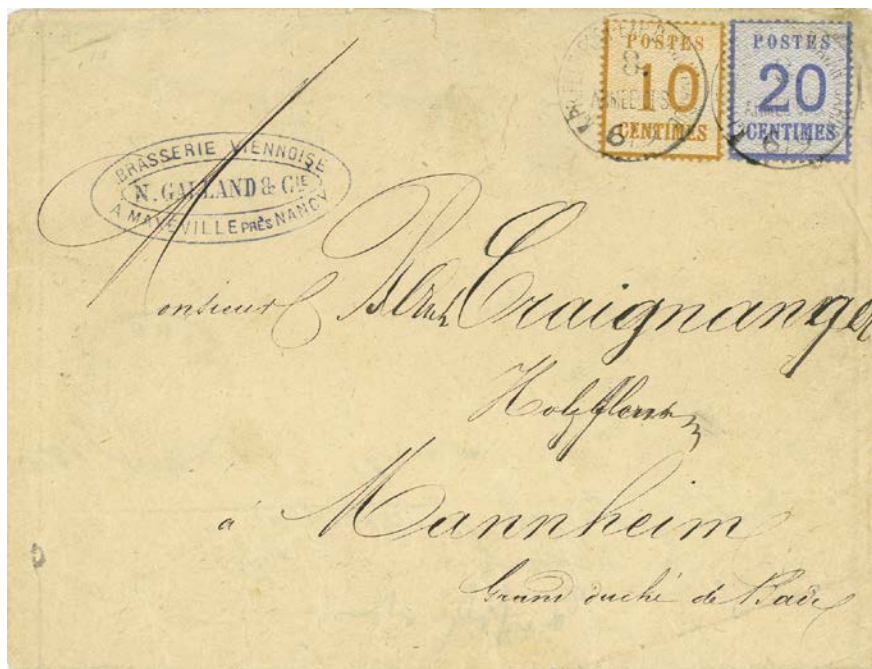 POSTES
10
CENTIMES
POSTES
20
CENTIMES
6/9
6/9
BRASSERIE VIENNOISE
N. GALLAND & CIE
A MAXEVILLE PRÈS NANCY
Monsieur Traignanger
à Mannheim
Grand duché de Bade